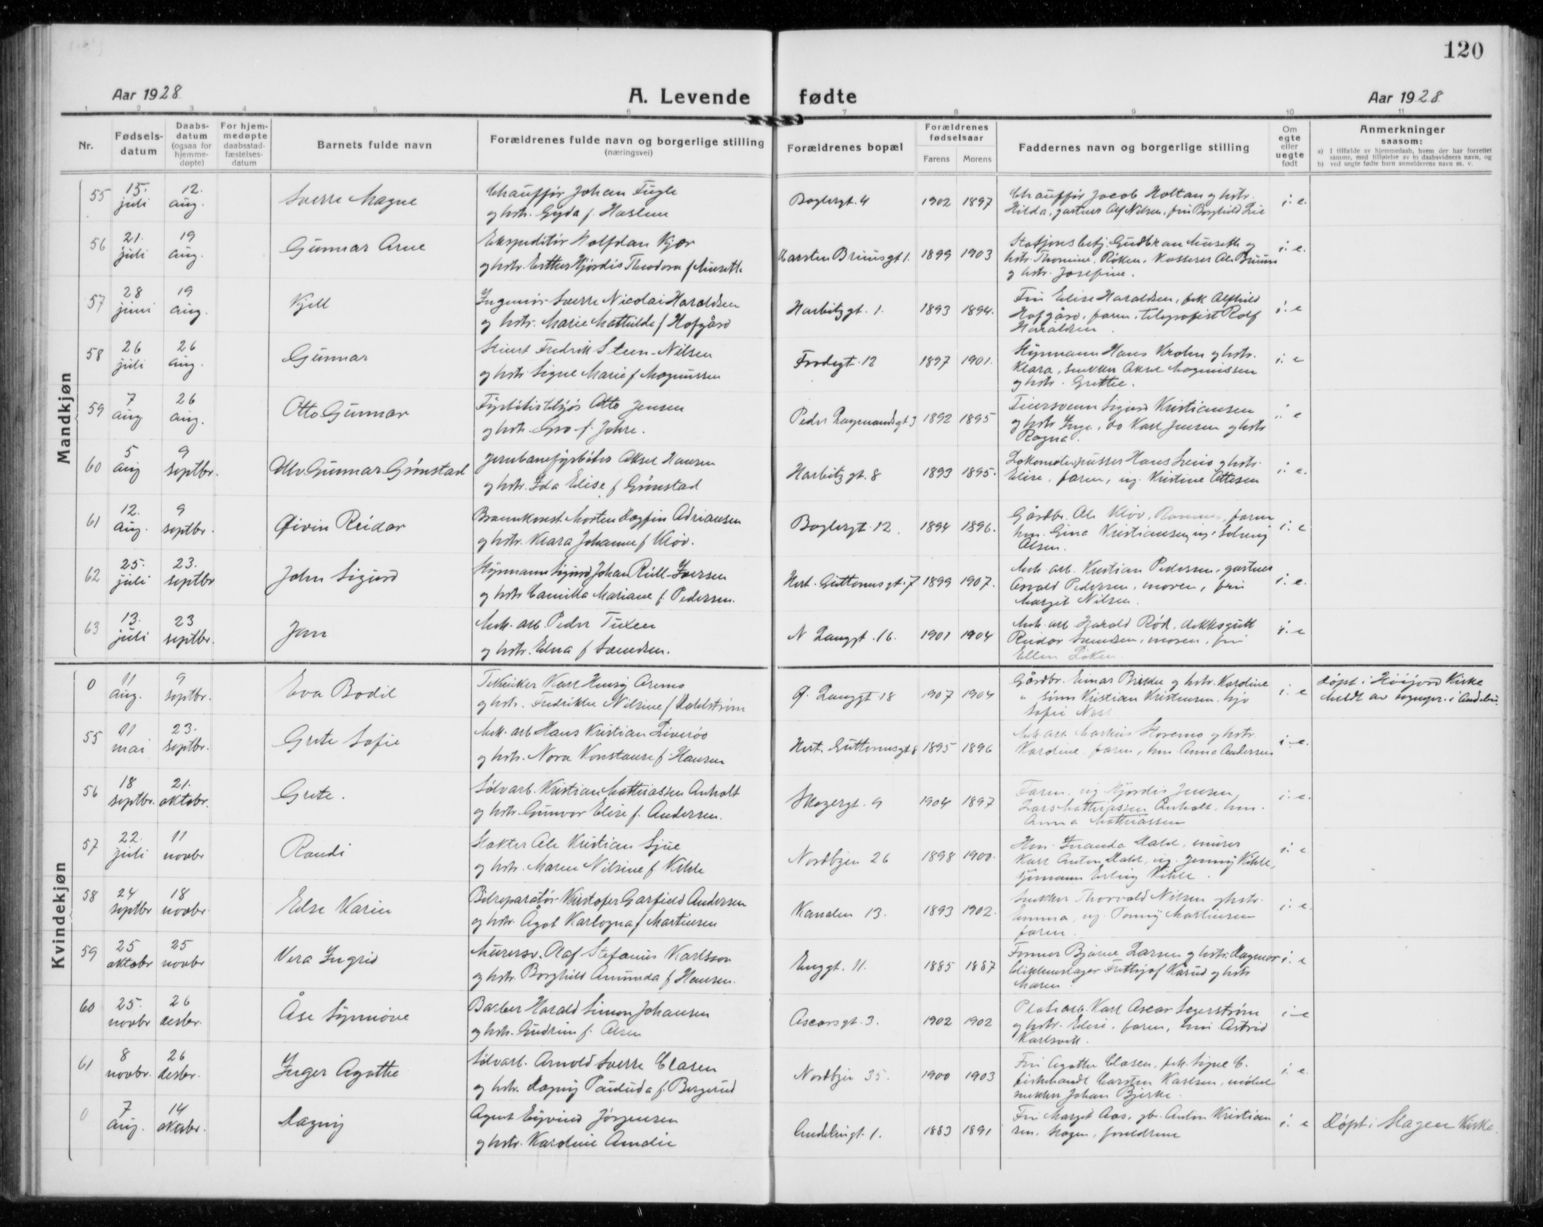 120
Aar 1928
A. Levende fødte
Aar 1928
1 2 3 4 5 6 7 8 9 10 11
Nr.
Fødsels-datum
Daabs-datum (ogsaa for hjemme-døpte)
For hjem-medøpte daabsstad-fæstelses-datum
Barnets fulde navn
Forældrenes fulde navn og borgerlige stilling (næringsvei)
Forældrenes bopæl
Forældrenes fødselsaar
Farens Morens
Faddernes navn og borgerlige stilling
Om egte eller uegte født
Anmerkninger saasom:
a) I tilfælde av hjemmedaab, hvem der har forrettet samme, med tilføielse av to daabsvidners navn, og
b) ved uegte fødte barn anmelderens navn m. v.
Mandkjøn
55 15. juli 12. aug. Sverre Magne
Chauffør Johan Fugle
og hstr. Gyda f. Haslum
Baglergt. 4 1902 1897
Chauffør Jacob Holtan og hstr.
Hilda, gartner Alf Nilsen, frk Borghild Lie
i. e.
56 21. juli 19 aug. Gunnar Arne
Ekspeditør Halfdan Kjær
og hstr. Esther Hjørdis Theodora f. Aaseth
Carsten Bruunsgt 1. 1899 1903
Stasjonsbetj. Gudbran Aaseth og
hstr. Thomine, Røken, Kasserer Ole Bruun
og hstr. Josefine.
i. e.
57 28 juni 19 aug. Kjell
Ingeniør Sverre Nicolai Haraldsen
og hstr. Marie Mathilde f. Hofgård
Harbitzgt. 1. 1893 1894.
Fru Elise Haraldsen, frk Alfhild
Hofgård, faren, telegrafist Rolf
Haraldsen
i. e
58 26 juli 26 aug. Gunnar
Stuert Fredrik Steen-Nilsen
og hstr Signe Marie f Magnussen
Frodegt. 12 1897 1901.
Styrmann Hans Krohn og hstr.
Klara, snekker Aksel Magnussen
og hstr. Grethe.
i. e
59 7 aug 26 aug. Otto Gunnar
Fyrbøter Otto Jensen
og hstr. Gro f. Jahre.
Peder Lagmandsgt 3 1892 1895
Feiersvenn Sigurd Kristiansen
og hstr Inga, do Karl Jensen og hstr
Ragna.
i. e
60 5 aug 9 septbr. Ulv Gunnar Grønstad
Jernbanefyrbøter Aksel Hansen
og hstr. Ida Elise f. Grønstad
Harbitzgt. 8 1893 1895.
Lokomotivpusser Hans og hstr.
Elise, faren, ug. Kristine Ottesen
i. e.
61 12. aug. 9 septbr. Øivin Reidar
Brannkonst. Morten Dagfin Adriansen
og hstr. Klara Johanne f. Kiøv.
Baglergt 12. 1894 1896.
Gårdbr. Ole Kiøv, Ramnes, faren
hm. Gina Kristiansen, ug. Solveig
Olsen.
i. e
62 25. juli 23. septbr John Sigurd
Styrmann Sigurd Johan Iversen
og hstr Camilla Mariane f. Pedersen.
Hert. Guttormsgt. 7 1899 1907.
Mek. arb. Kristian Pedersen, gartner
Arvald Pedersen, moren, fru
Margit Nilsen.
i. e.
63 13. juli 23 septbr. Jan
Mek. arb. Peder Tuxen
og hstr. Edna f. Svendsen.
N. Langgt. 16. 1901 1904
Mek arb Harald Rød, dekksgutt
Reidar Svendsen, moren, fru
Ellen Løken.
i. e
Kvindekjøn
0 11 aug. 9 septbr. Eva Bodil
Tekniker Karl Henry
og hstr. Fredrikke Nilsine f.
Ø. Langgt 18 1907 1904
Gårdbr. Einar og hstr. Karoline
" sønn Kristian Kristensen
Sofie
i e
døpt i Høijord Kirke
meldt av sognepr. i Andebu
55 11 mai 23. septbr. Grete Sofie
Mek. arb Hans Kristian
og hstr. Nora Konstanse f. Hansen
Hert. Guttormsgt 8 1895 1896
Mek arb. Markus og hstr.
Karoline, faren, hm. Anna Andersen
i. e.
56 18 septbr. 21. oktobr. Grete.
Sølvarb. Kristian Mathiassen Anholt
og hstr. Gunvor Elise f. Andersen.
Skogergt. 9 1904 1897
Faren, ug Hjørdis Jensen,
Lars Mathiassen Anholt, hm.
Anna Mathiassen
i. e.
57 22. juli 11 novbr Randi
Slakter Ole Kristian
og hstr. Maren Nilsine f.
Nordbyen 26 1898 1900.
Hm. Dahl, murer
Karl Anton Dahl, ug. Jenny
sjømann Erling
i. e
58 24 septbr 18 novbr Else Karin
Bilreparatør Kristofer Garfield Andersen
og hstr Ågot Karlogna f Martinsen
Kanalen 13. 1893 1902.
Snekker Thorvald Nilsen og hstr.
Emma, ug. Tommy Martinsen
faren.
i. e.
59 25 oktobr 25 novbr Vera Ingrid
Murersv. Olaf Stefanus Karlsson
og hstr Borghild Amunda f Hansen.
Enggt. 11. 1885 1887
Former Bjarne Larsen og hstr. Dagmar
blikkenslager Fritthjof og hstr
Maren.
i. e
60 25. novbr 26 desbr. Åse Synnøve
Barber Harald Simon Johansen
og hstr. Gudrun f. Olsen
Oscarsgt. 3. 1902 1902
Platearb. Karl Oscar Segerstrøm
og hstr. Elise, faren, fru Astrid
Karlsvik.
i. e
61 8 novbr. 26 desbr. Inger Agathe
Sølvarb. Arnold Sverre Clasen
og hstr. Dagny Paulida f. Bergerud
Nordbyen 35. 1900 1903
Fru Agathe Clasen, frk. Signe C.
fiskehandl. Carsten Karlsen,
snekker Johan Bjerke.
i. e.
0 7 aug. 14 oktobr. Dagny
Agent Eyvind Jørgensen
og hstr. Karoline Amalie
Andebugt. 1. 1883 1891
Fru Margit Aas, gbr. Anton Kristian
sen, Skagen, foreldrene
i. e
Døpt i Skagen Kirke.